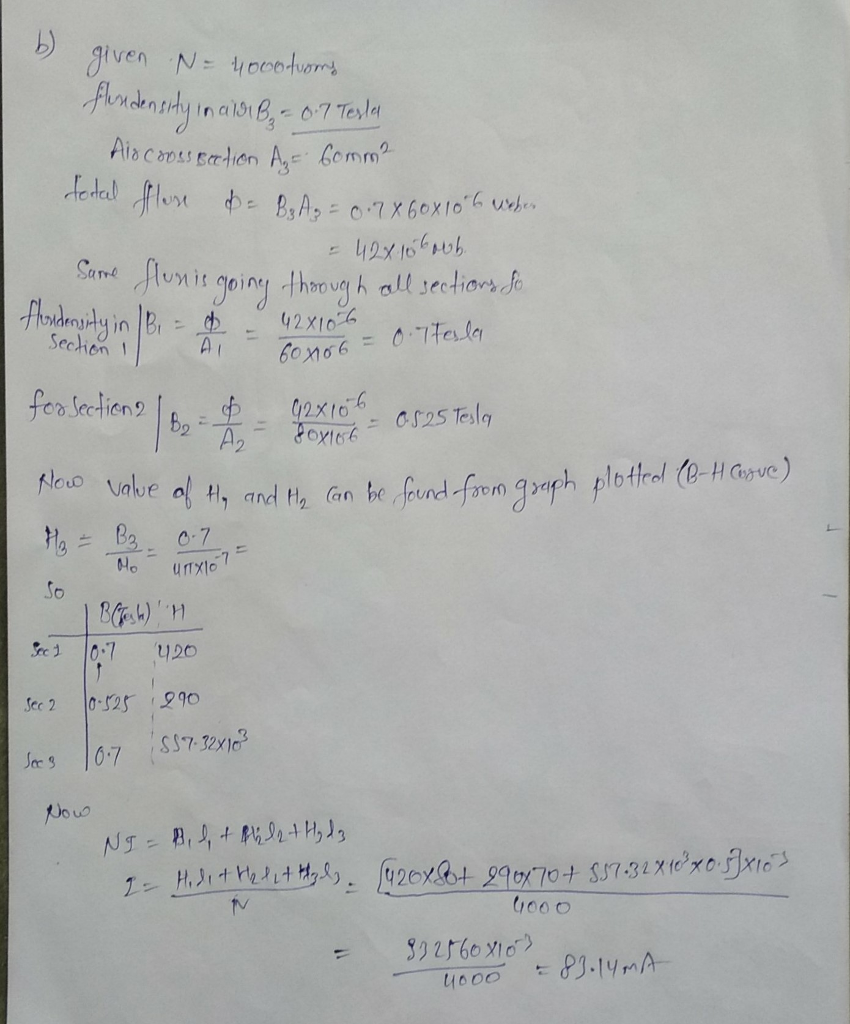 b) given N = 4000 turns
flux density in air B₃ = 0.7 Tesla
Air cross section A₃ = 60mm²
total flux Φ = B₃A₃ = 0.7 × 60×10⁻⁶ weber
= 42×10⁻⁶ wb
Same flux is going through all sections so
flux density in section 1 | B₁ = Φ/A₁ = 42×10⁻⁶/60×10⁻⁶ = 0.7 Tesla
for section 2 | B₂ = Φ/A₂ = 42×10⁻⁶/80×10⁻⁶ = 0.525 Tesla
Now value of H₁ and H₂ can be found from graph plotted (B-H curve)
H₃ = B₃/μ₀ = 0.7/4π×10⁻⁷ =
So
B(Tesla) H
Sec 1 0.7 420
Sec 2 0.525 290
Sec 3 0.7 557.32×10³
Now
NI = H₁l₁ + H₂l₂ + H₃l₃
I = H₁l₁ + H₂l₂ + H₃l₃/N = [420×80 + 290×70 + 557.32×10³×0.5]×10⁻³/4000
= 332560×10⁻³/4000 = 83.14mA